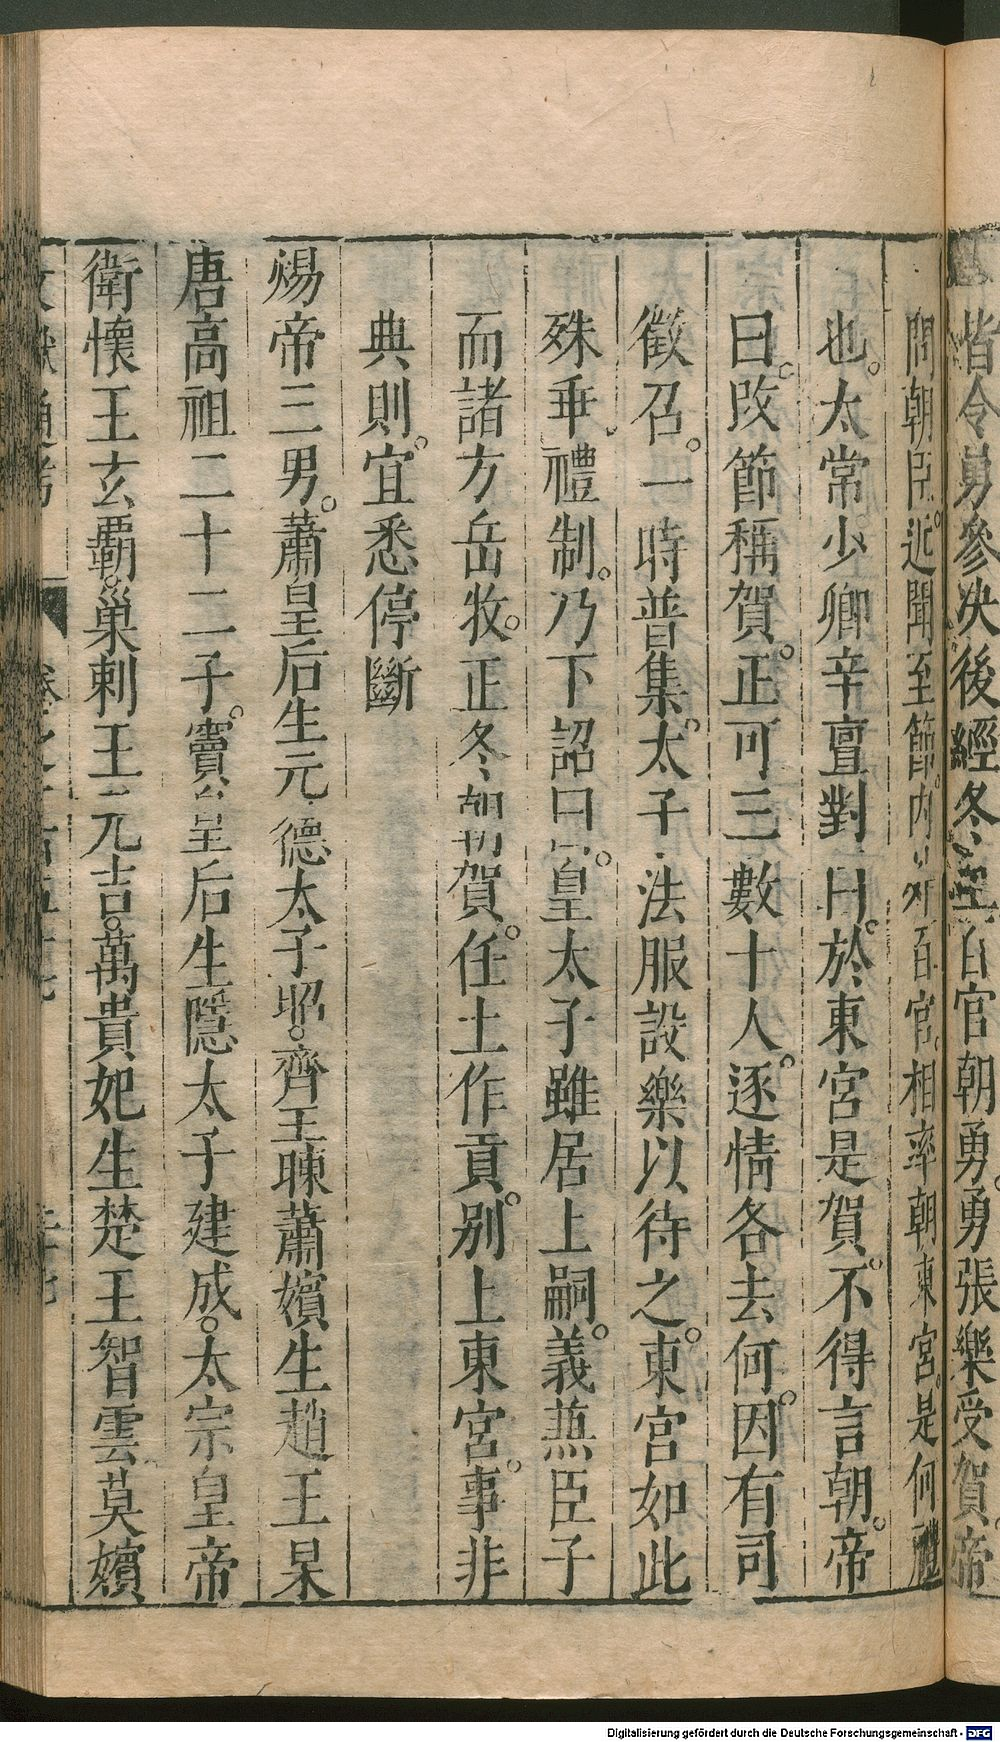 皆令勇參决後經冬至百官朝勇。勇張樂受賀。帝
問朝臣。近聞至節。内外百官。相率朝東宮。是何禮
也。太常少卿辛亶對曰。於東宮是賀。不得言朝。帝
曰。改節稱賀。正可三數十人。逐情各去何。因有司
徵召。一時普集。太子法服設樂以待之。東宮如此
殊乖禮制。乃下詔曰。皇太子雖居上嗣。義蒹臣子
而諸方岳牧。正冬朝賀。任土作貢。別上東宮。事非
典則。宜悉停斷
煬帝三男。蕭皇后生元德太子昭。齊王暕蕭嬪生趙王杲
唐高祖二十二子。竇皇后生隱太子建成。太宗皇帝
衛懷王玄覇。巢剌王元吉。萬貴妃生楚王智雲莫嬪
文獻通考
Digitalisierung gefördert durch die Deutsche Forschungsgemeinschaft - DFG